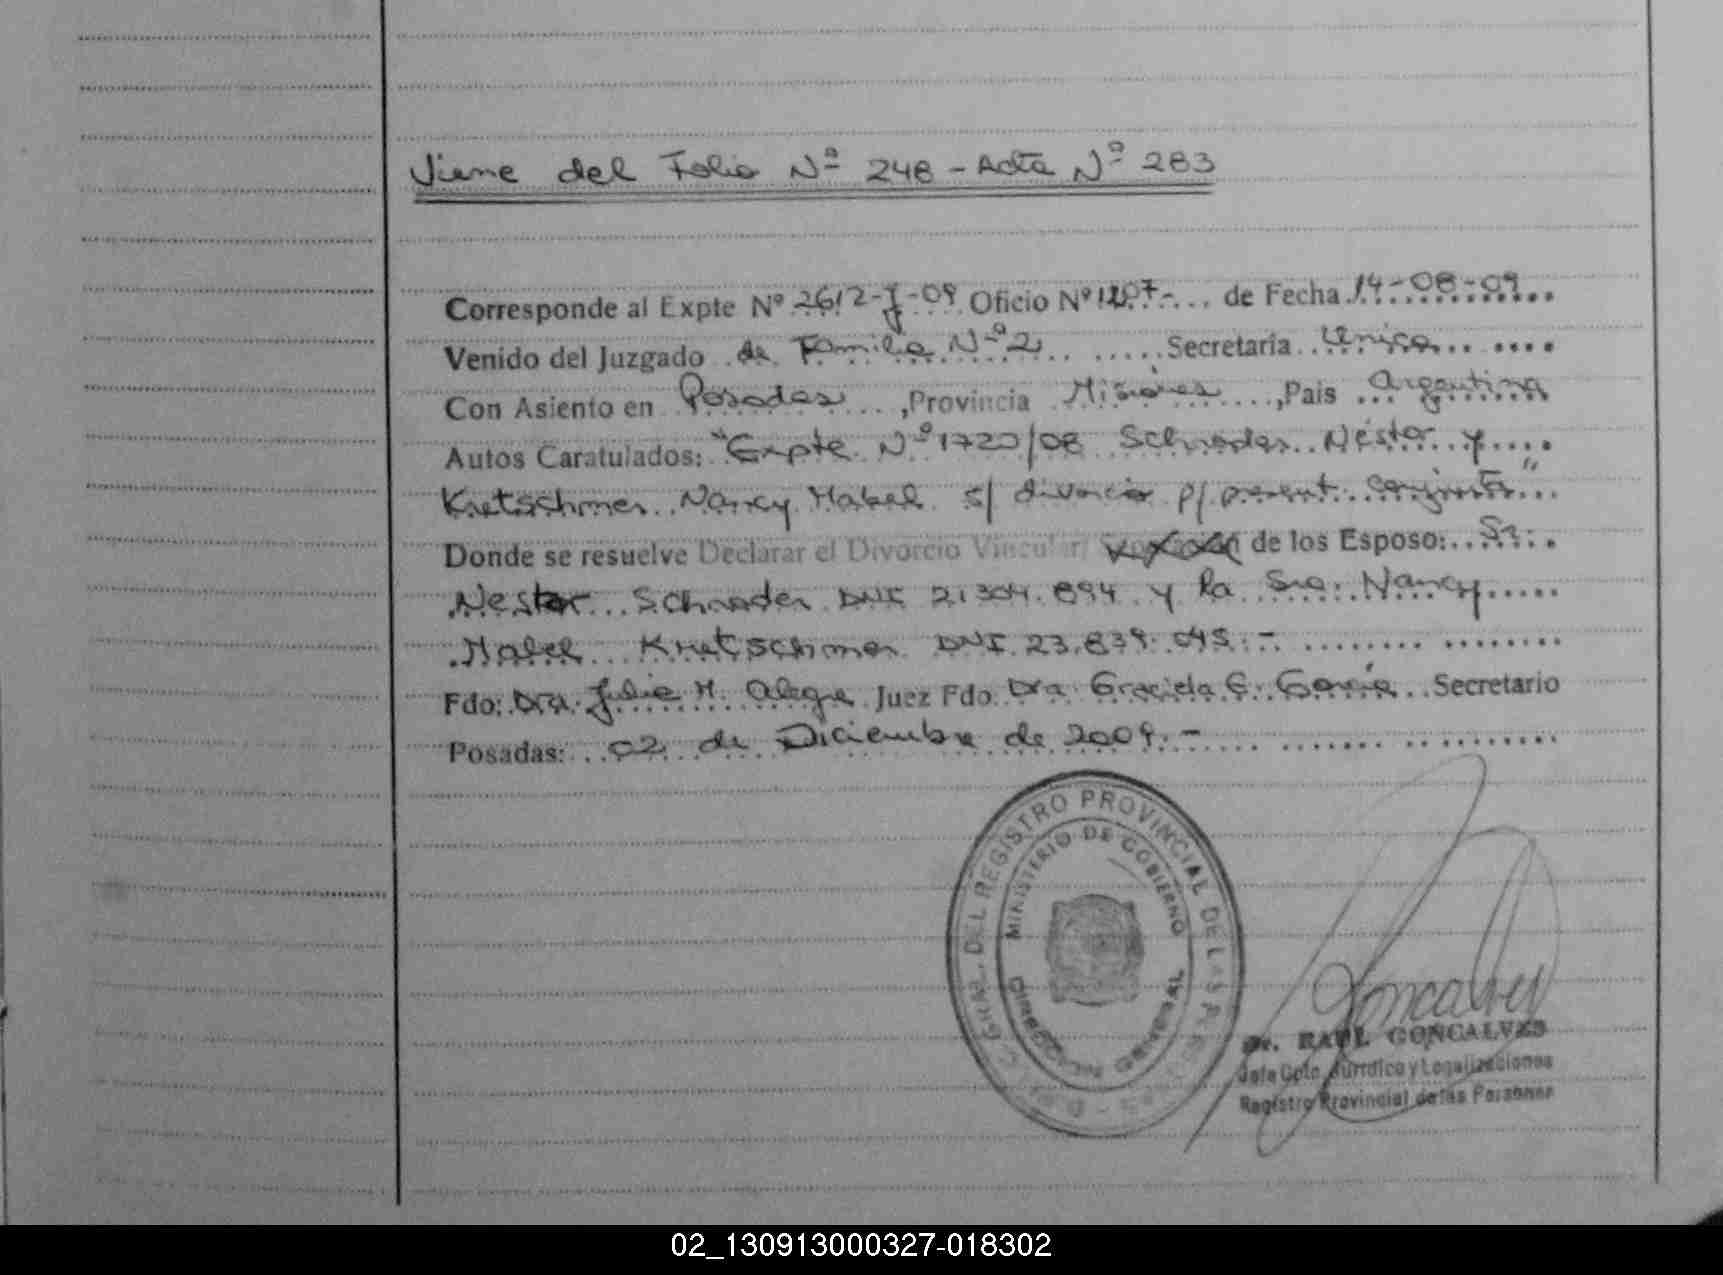 Viene del Folio Nº 248 - Acta Nº 283
Corresponde al Expte Nº 2612-J-09 Oficio Nº 1207-... de Fecha 14-08-09
Venido del Juzgado de Familia Nº 2 Secretaria Unica
Con Asiento en Posadas, Provincia Misiones, País Argentina
Autos Caratulados: "Expte Nº 1720/08 Schroder Néstor y
Kretschmer Nancy Mabel s/ divorcio p/ present. conjunta"
Donde se resuelve Declarar el Divorcio Vincular/ de los Esposo: Sr.
Nestor Schroder DNI 21.304.894 y la Sra. Nancy
Mabel Kretschmer DNI 23.839.045.-
Fdo: Dra. Julia M. Alegre Juez Fdo. Dra. Graciela G. Secretario
Posadas: 02 de Diciembre de 2009.-
GRAL. DEL REGISTRO PROVINCIAL DE LAS
MINISTERIO DE GOBIERNO
Goncalves
Dr. RAUL GONCALVES
Jefe Dpto. Jurídico y Legalizaciones
Registro Provincial de las Personas
02_130913000327-018302